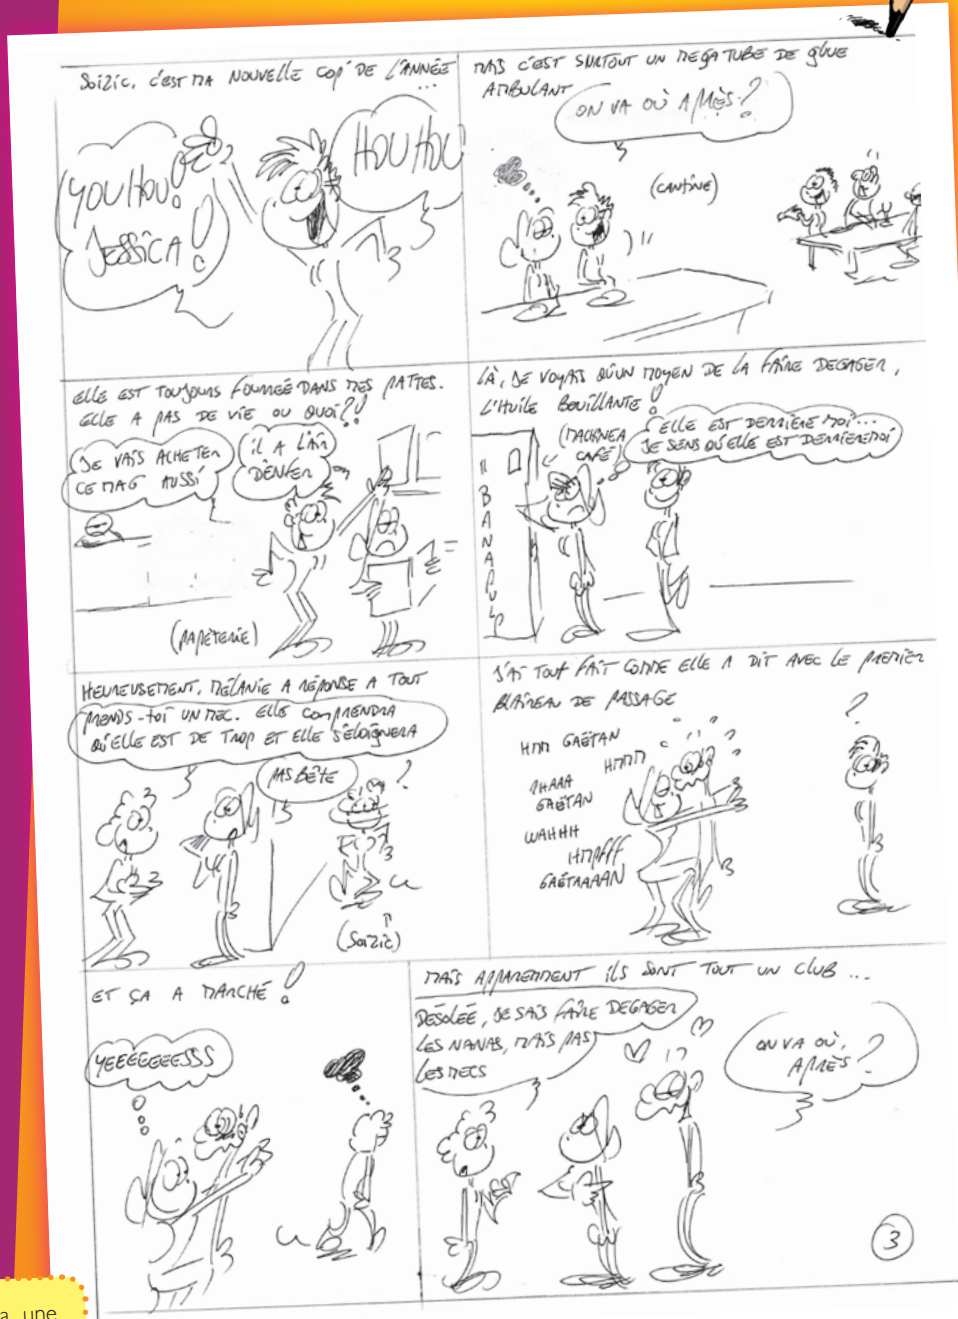 SOIZIC, C'EST MA NOUVELLE COP' DE L'ANNÉE
...
YOUHOU!
JESSICA!
HOU HOU
MAIS C'EST SURTOUT UN MEGA TUBE DE GLUE
AMBULANT
ON VA OÙ APRÈS?
(CANTINE)
ELLE EST TOUJOURS FOURRÉE DANS MES PATTES.
ELLE A PAS DE VIE OU QUOI?!
JE VAIS ACHETER
CE MAG AUSSI
IL A L'AIR
D'ENFER
(PAPÈTERIE)
LÀ, JE VOYAIS QU'UN MOYEN DE LA FAIRE DEGAGER,
L'HUILE BOUILLANTE!
(MACHINE A
CAFÉ)
ELLE EST DERRIÈRE MOI...
JE SENS QU'ELLE EST DERRIERE MOI
BANAPULP
HEUREUSEMENT, MÉLANIE A RÉPONSE A TOUT
PRENDS-TOI UN MEC. ELLE COMPRENDRA
QU'ELLE EST DE TROP ET ELLE S'ÉLOIGNERA
PAS BÊTE
?
(SOIZIC)
J'AI TOUT FAIT COMME ELLE A DIT AVEC LE PREMIER
BLAIREAU DE PASSAGE
HMM GAËTAN
HMMM
AHAAA
GAËTAN
WAHHH
HMPFFF
GAËTAAAAN
?
ET ÇA A MARCHÉ!
YEEEEEEESSS
MAIS APPAREMMENT ILS SONT TOUT UN CLUB...
DÉSOLÉE, JE SAIS FAIRE DEGAGER
LES NANAS, MAIS PAS
LES MECS
ON VA OÙ,
APRÈS?
3
a une